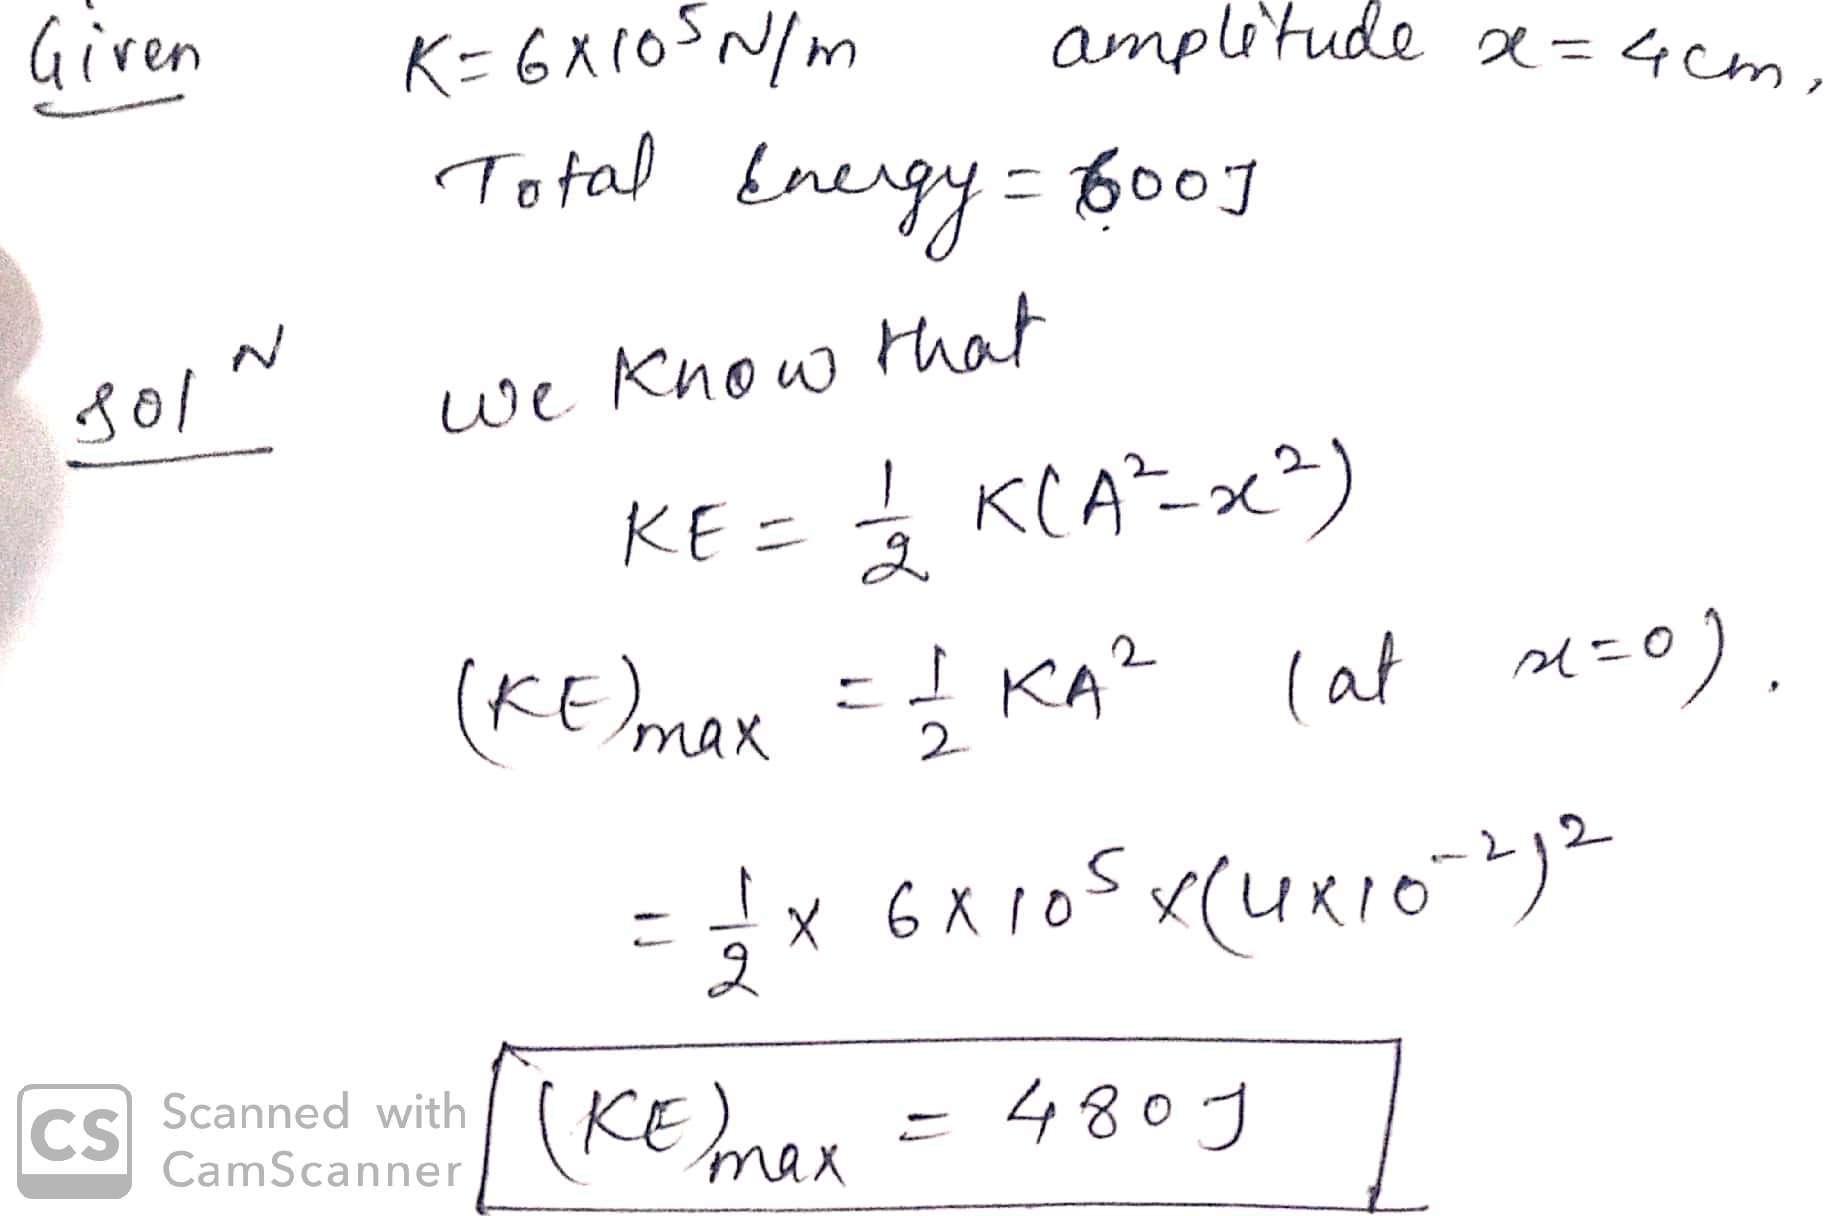 Given K = 6×10⁵ N/m amplitude x = 4cm,
Total Energy = 600J
Solᴺ we Know that
KE = 1/2 K(A²-x²)
(KE)max = 1/2 KA² (at x=0).
= 1/2 × 6×10⁵ ×(4×10⁻²)²
(KE)max = 480J
CS Scanned with
CamScanner